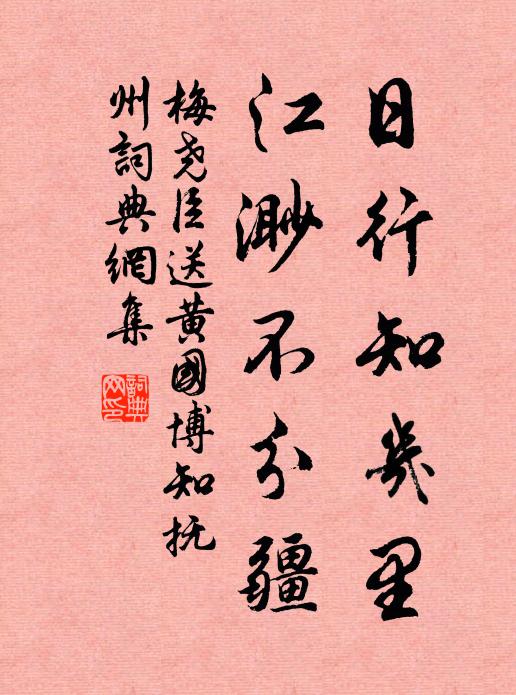 日行知幾里
江渺不分疆
梅尧臣送黄國博知抚
州詞典網集
詞典
网印